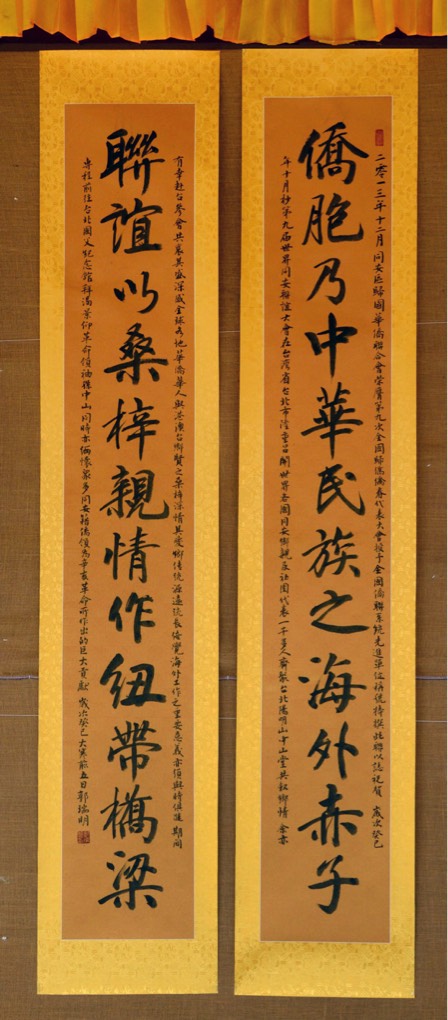 二零一三年十二月同安區歸國華僑聯合會榮膺第九次全國歸僑僑眷代表大會授予全國僑聯系統先進單位稱號特撰此聯以誌祝賀 歲次癸巳
僑胞乃中華民族之海外赤子
年十月秒第九屆世界同安聯誼大會在台灣省台北市隆重召開世界各國同安鄉親及社團代表一千多人齊聚台北陽明山中山堂共敘鄉情 余亦
有幸赴台參會共襄其盛深感全球各地華僑華人與港澳台鄉賢之桑梓深情其愛鄉傳統源遠流長倍覺海外工作之重要意義亦須與時俱進 期間
聯誼以桑梓親情作紐帶橋梁
專程前往台北國父紀念館拜謁景仰革命領袖孫中山同時亦緬懷眾多同安籍僑領為辛亥革命所作出的巨大貢獻 歲次癸巳大寒前五日郭瑞明